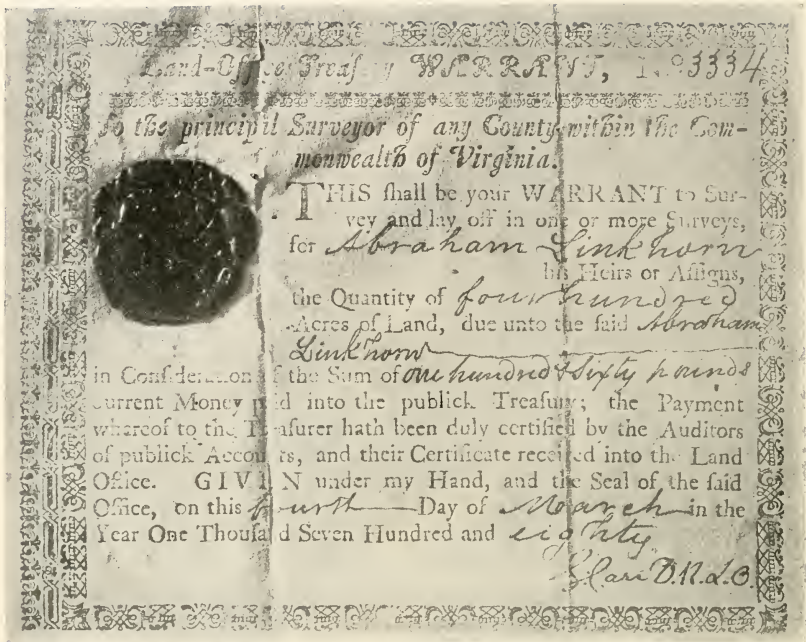 Land-Office Treasury WARRANT, No 3334
To the principil Surveyor of any County within the Com-
monwealth of Virginia.
THIS ſhall be your WARRANT to Sur-
vey and lay off in one or more Surveys,
for Abraham Linkhorn
his Heirs or Aſſigns,
the Quantity of four hundred
Acres of Land, due unto the ſaid Abraham
Linkhorn
in Conſideration of the Sum of one hundred & Sixty pounds
current Money paid into the publick Treaſury; the Payment
whereof to the Treaſurer hath been duly certified by the Auditors
of publick Accounts, and their Certificate received into the Land
Office. GIVEN under my Hand, and the Seal of the ſaid
Office, on this fourth Day of March in the
Year One Thouſand Seven Hundred and eighty